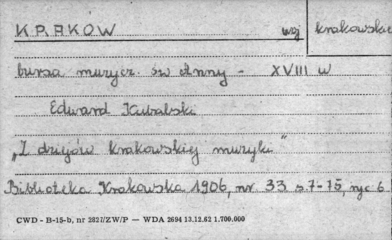 KRAKÓW woj krakowskie
bursa muzycz. św Anny - XVIII w
Edward Kubalski
„Z dziejów krakowskiej muzyki"
Biblioteka Krakowska 1906, nr. 33 s. 7-15, ryc 6.
CWD - B-15-b, nr 2821/ZW/P — WDA 2694 13.12.62 1.700.000